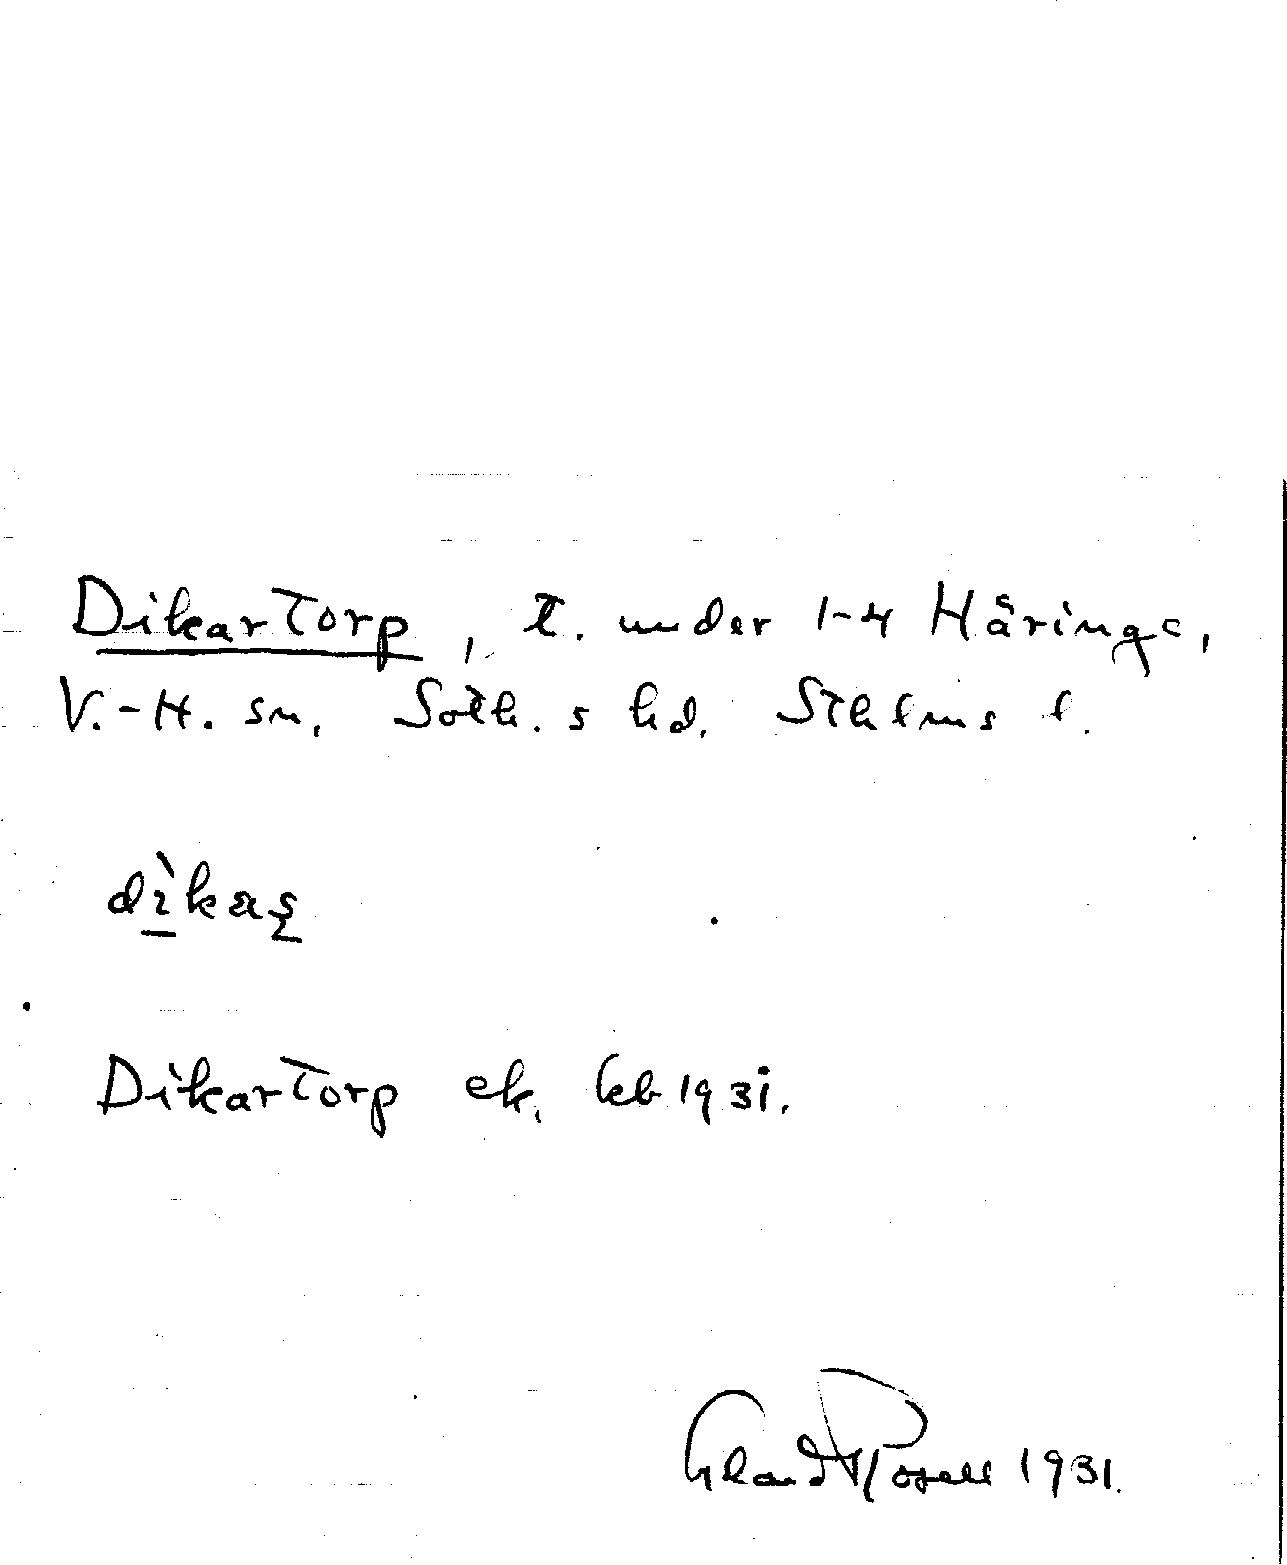 Dikartorp, t. under 1-4 Häringe,
V.-H. sn. Soth. s hd. Sthlms l.
dìkaş
Dikartorp ek. kb 1931.
Rosell 1931.